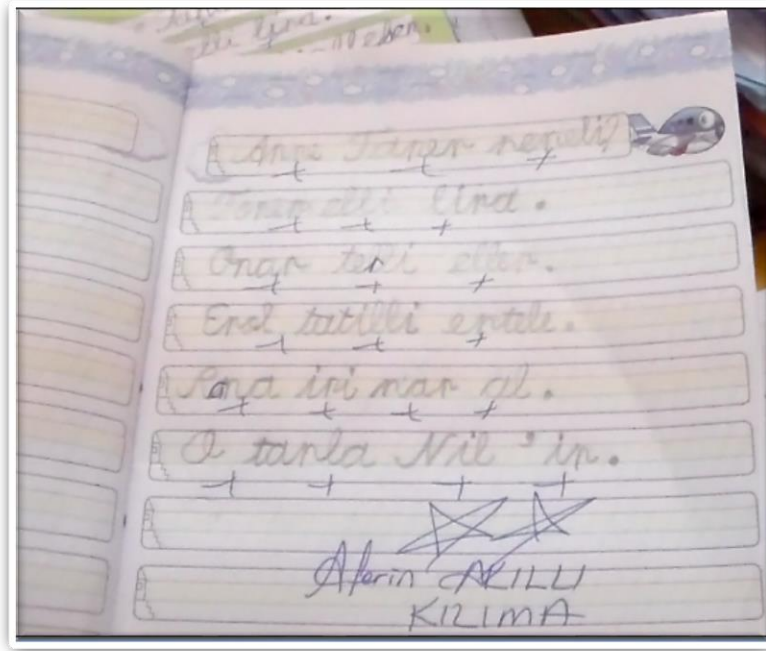 elli lira.
Anne Taner nereli?
Taner elli lira.
Onar telli eller.
Erol tatili ertele.
Ona iri nar al.
O tarla Nil'in.
Aferin AKILLI
KIZIMA